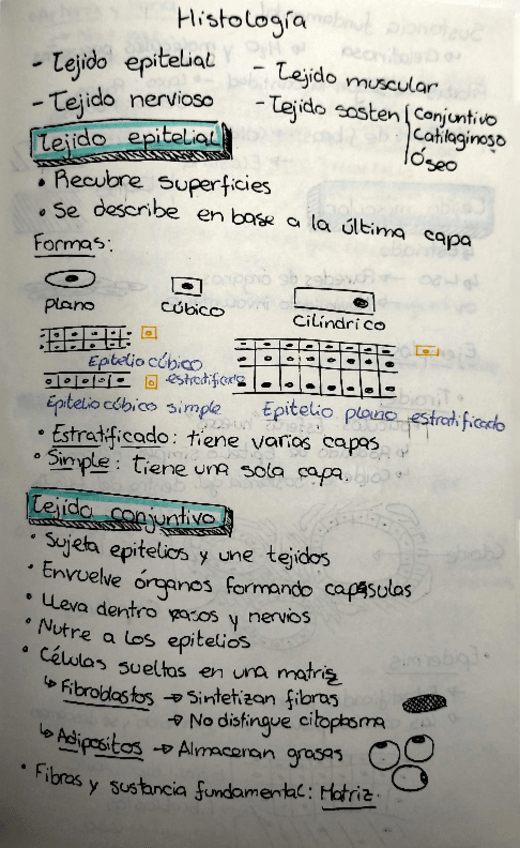 Histología
- Tejido epitelial
- Tejido muscular
- Tejido nervioso
- Tejido sosten
Conjuntivo
Catilaginoso
Óseo
Tejido epitelial
• Recubre superficies
• Se describe en base a la última capa
Formas:
plano
cúbico
Cilíndrico
Epitelio cúbico
estratificado
Epitelio cúbico simple
Epitelio plano estratificado
• Estratificado: tiene varias capas
• Simple: tiene una sola capa.
Tejido conjuntivo
• Sujeta epitelios y une tejidos
• Envuelve órganos formando capsulas
• Lleva dentro vasos y nervios
• Nutre a los epitelios
• Células sueltas en una matriz
↳ Fibroblastos → Sintetizan fibras
→ No distingue citoplasma
↳ Adipositos → Almacenan grasas
• Fibras y sustancia fundamental: Matriz.